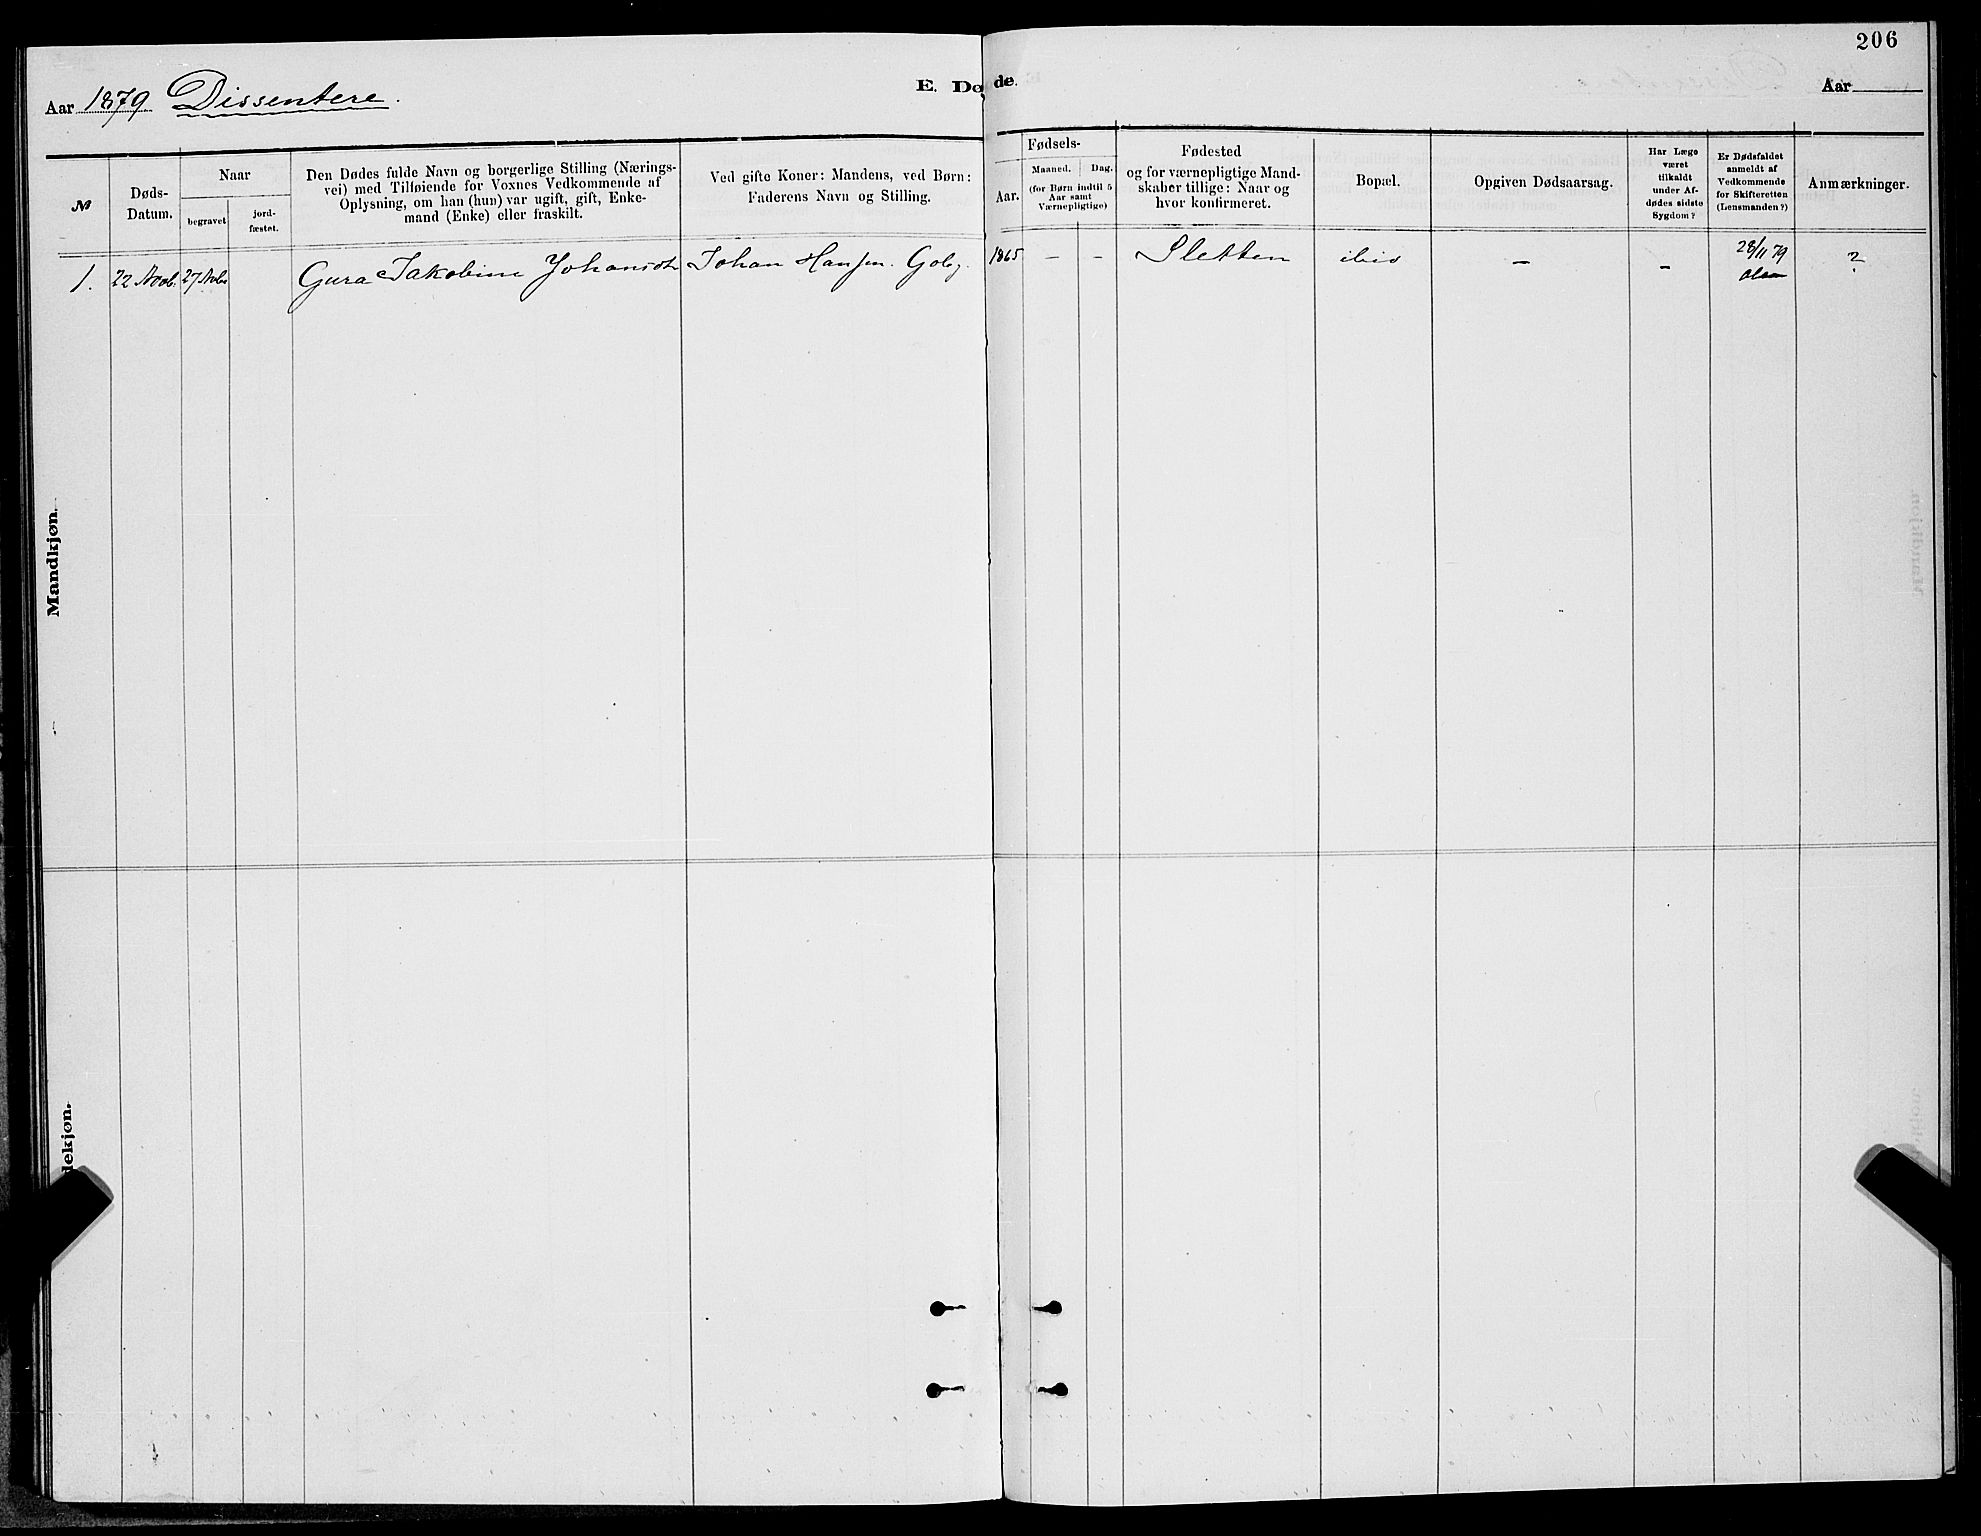 206
Aar 1879 Dissentere.
E. Dø
de.
Aar
№
Døds-
Datum.
Naar
begravet
jord-
fæstet.
Den Dødes fulde Navn og borgerlige Stilling (Nærings-
vei) med Tilføiende for Voxnes Vedkommende af
Oplysning, om han (hun) var ugift, gift, Enke-
mand (Enke) eller fraskilt.
Ved gifte Koner: Mandens, ved Børn:
Faderens Navn og Stilling.
Fødsels-
Aar.
Maaned. Dag.
(for Børn indtil 5
Aar samt
Værnepligtige)
Fødested
og for værnepligtige Mand-
skaber tillige: Naar og
hvor konfirmeret.
Bopæl.
Opgiven Dødsaarsag.
Har Læge
været
tilkaldt
under Af-
dødes sidste
Sygdom?
Er Dødsfaldet
anmeldt af
Vedkommende
for Skifteretten
(Lensmanden?)
Anmærkninger.
1. 22 Novb. 27 Novbr Gura Jakobine Johansdtr Johan Hansen. 1865 - - Sletten ibid - - 28/11 79 ?
Olsen
Mandkjøn.
dekjøn.